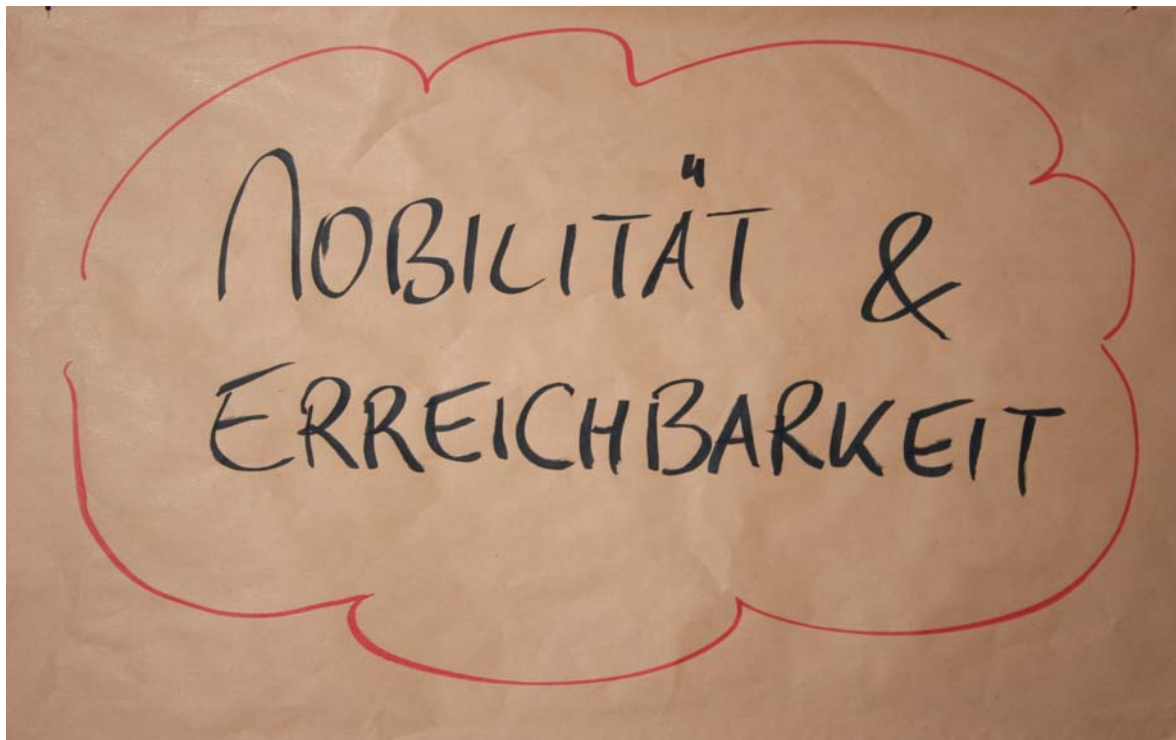 MOBILITÄT &
ERREICHBARKEIT